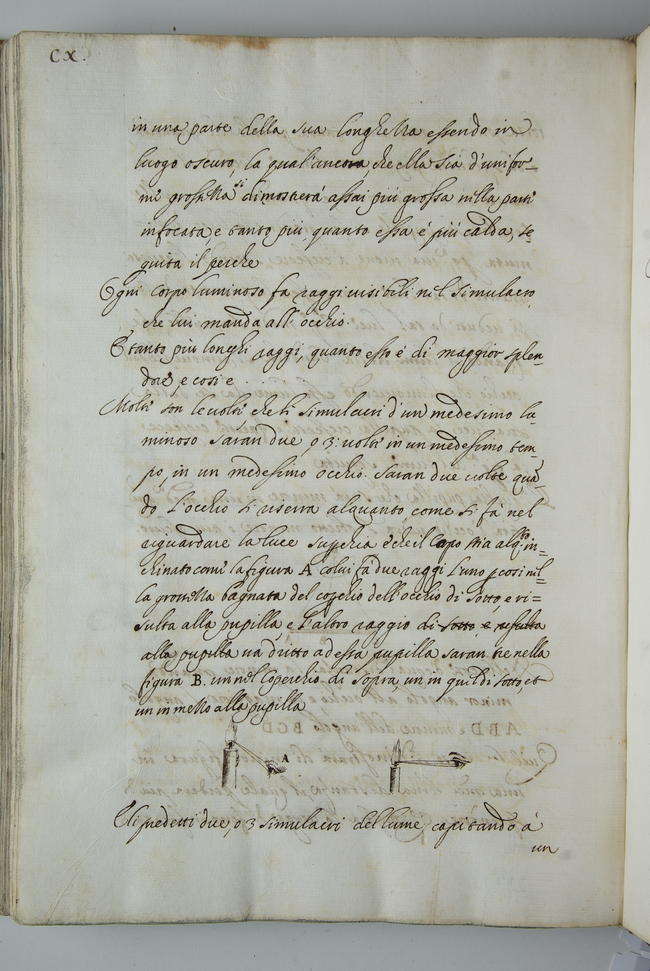 CX.
in una parte della sua longhezza essendo in
luogo oscuro, la qual'ancora, che ella sia d'unifor-
me grossezza si dimosterà assai più grossa nella parte
infocata, e tanto più, quanto essa è più calda, se-
guita il perche
Ogni corpo luminoso fa raggi visibili nel simulacro,
che lui manda all'occhio.
E tanto più longhi raggi, quanto esso è di maggior splen-
dore, e cosi e ...
Molte son le volte che li simulacri d'un medesimo lu-
minoso saran due, o 3: volte in un medesimo tem-
po, in un medesimo occhio. saran due volte quã-
do l'occhio si riserra alquanto, come si fà nel
riguardare la luce superchia è che il capo stia alqto in-
chinato come la figura A colui fà due raggi l'uno p cosi nel-
la grossezza bagnata del coperchio dell'occhio di sotto, e ri=
sulta alla pupilla e l'altro raggio di sotto, e risulta
alla pupilla va dritto ad essa pupilla saran tre nella
figura B. un nel coperchio di sopra, un in quel di sotto, et
un in mezzo alla pupilla
A
Gli predetti due, o 3 simulacri del lume capitando à
un